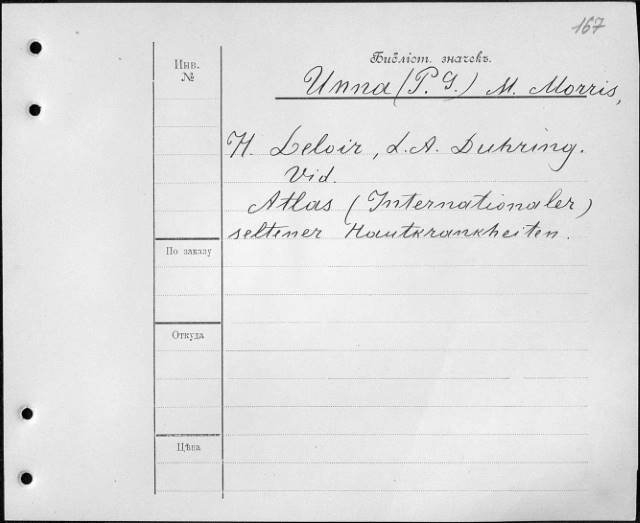 167
Инв.
№
Библіот. значекъ.
Unna (P. G.) M. Morris,
H. Leloir, L. A. Duhring.
Vid.
Atlas (Internationaler)
seltener Hautkrankheiten.
По заказу
Откуда
Цѣна